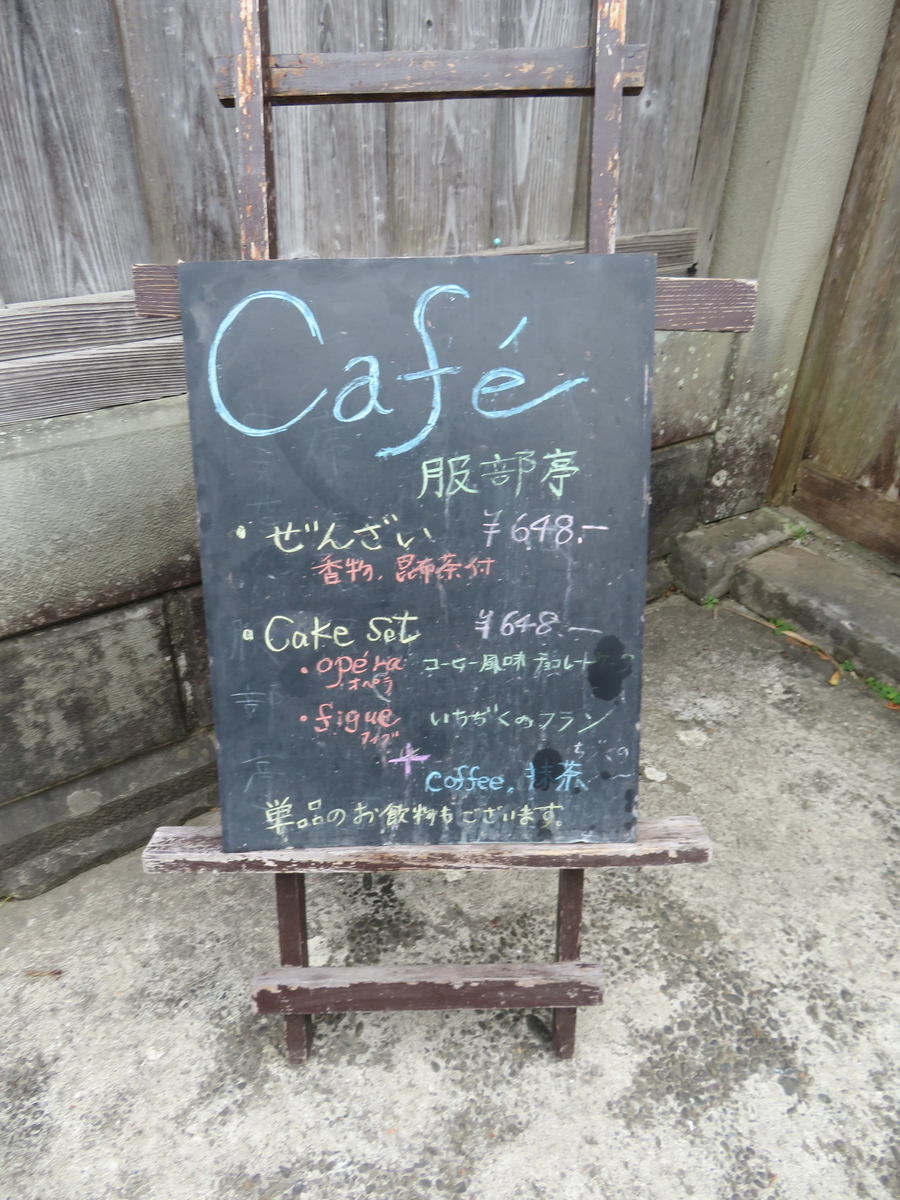 Café
服部亭
・ぜんざい ¥648.―
香物、昆布茶付
・Cake Set ¥648.―
・opéra コーヒー風味 チョコレート
オペラ
・figue いちぢくのフラン
フィグ
+
Coffee, 抹茶
単品のお飲物もございます。